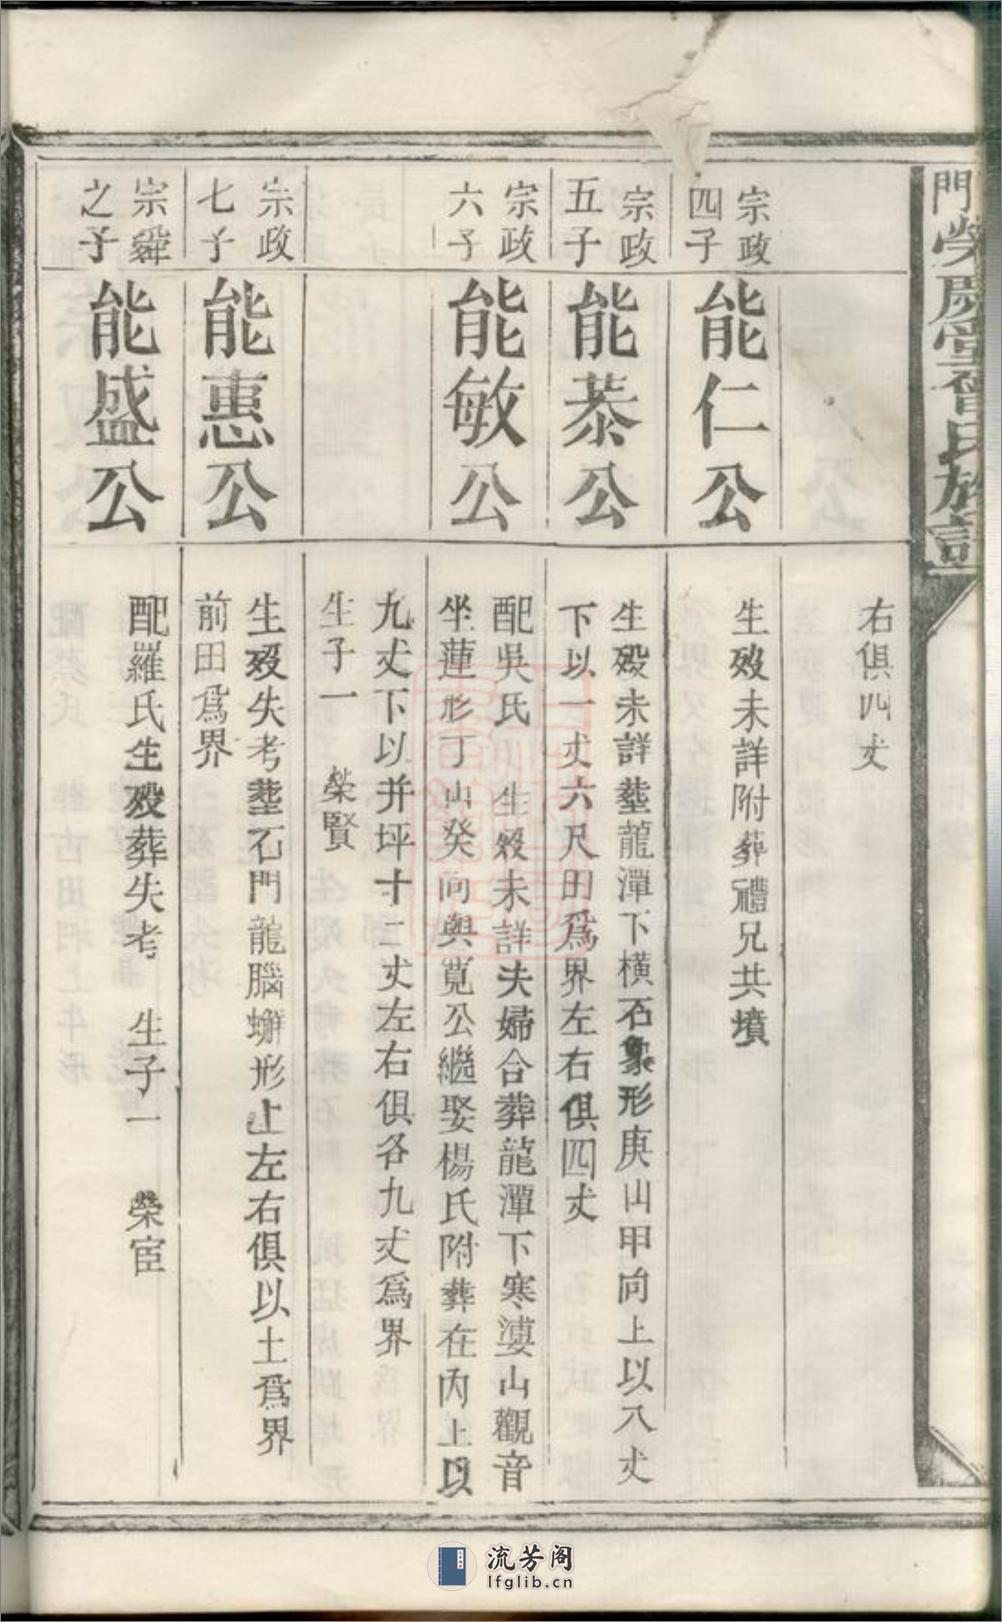 門榮慶堂曾氏族譜
右俱四丈
宗政
四子
能仁公
生歿未詳附葬禮兄共墳
宗政
五子
能恭公
生歿未詳塟龍潭下橫石象形庚山甲向上以八丈
下以一丈六尺田爲界左右俱四丈
宗政
六子
能敏公
配吳氏 生歿未詳夫婦合葬龍潭下寒婆山觀音
坐蓮形丁山癸向與寬公繼娶楊氏附葬在內上以
九丈下以井坪十二丈左右俱各九丈爲界
生子一 榮賢
宗政
七子
能惠公
生歿失考塟石門龍腦螃形上左右俱以土爲界
前田爲界
宗舜
之子
能盛公
配羅氏生歿葬失考 生子一 榮宦
流芳阁
lfglib.cn